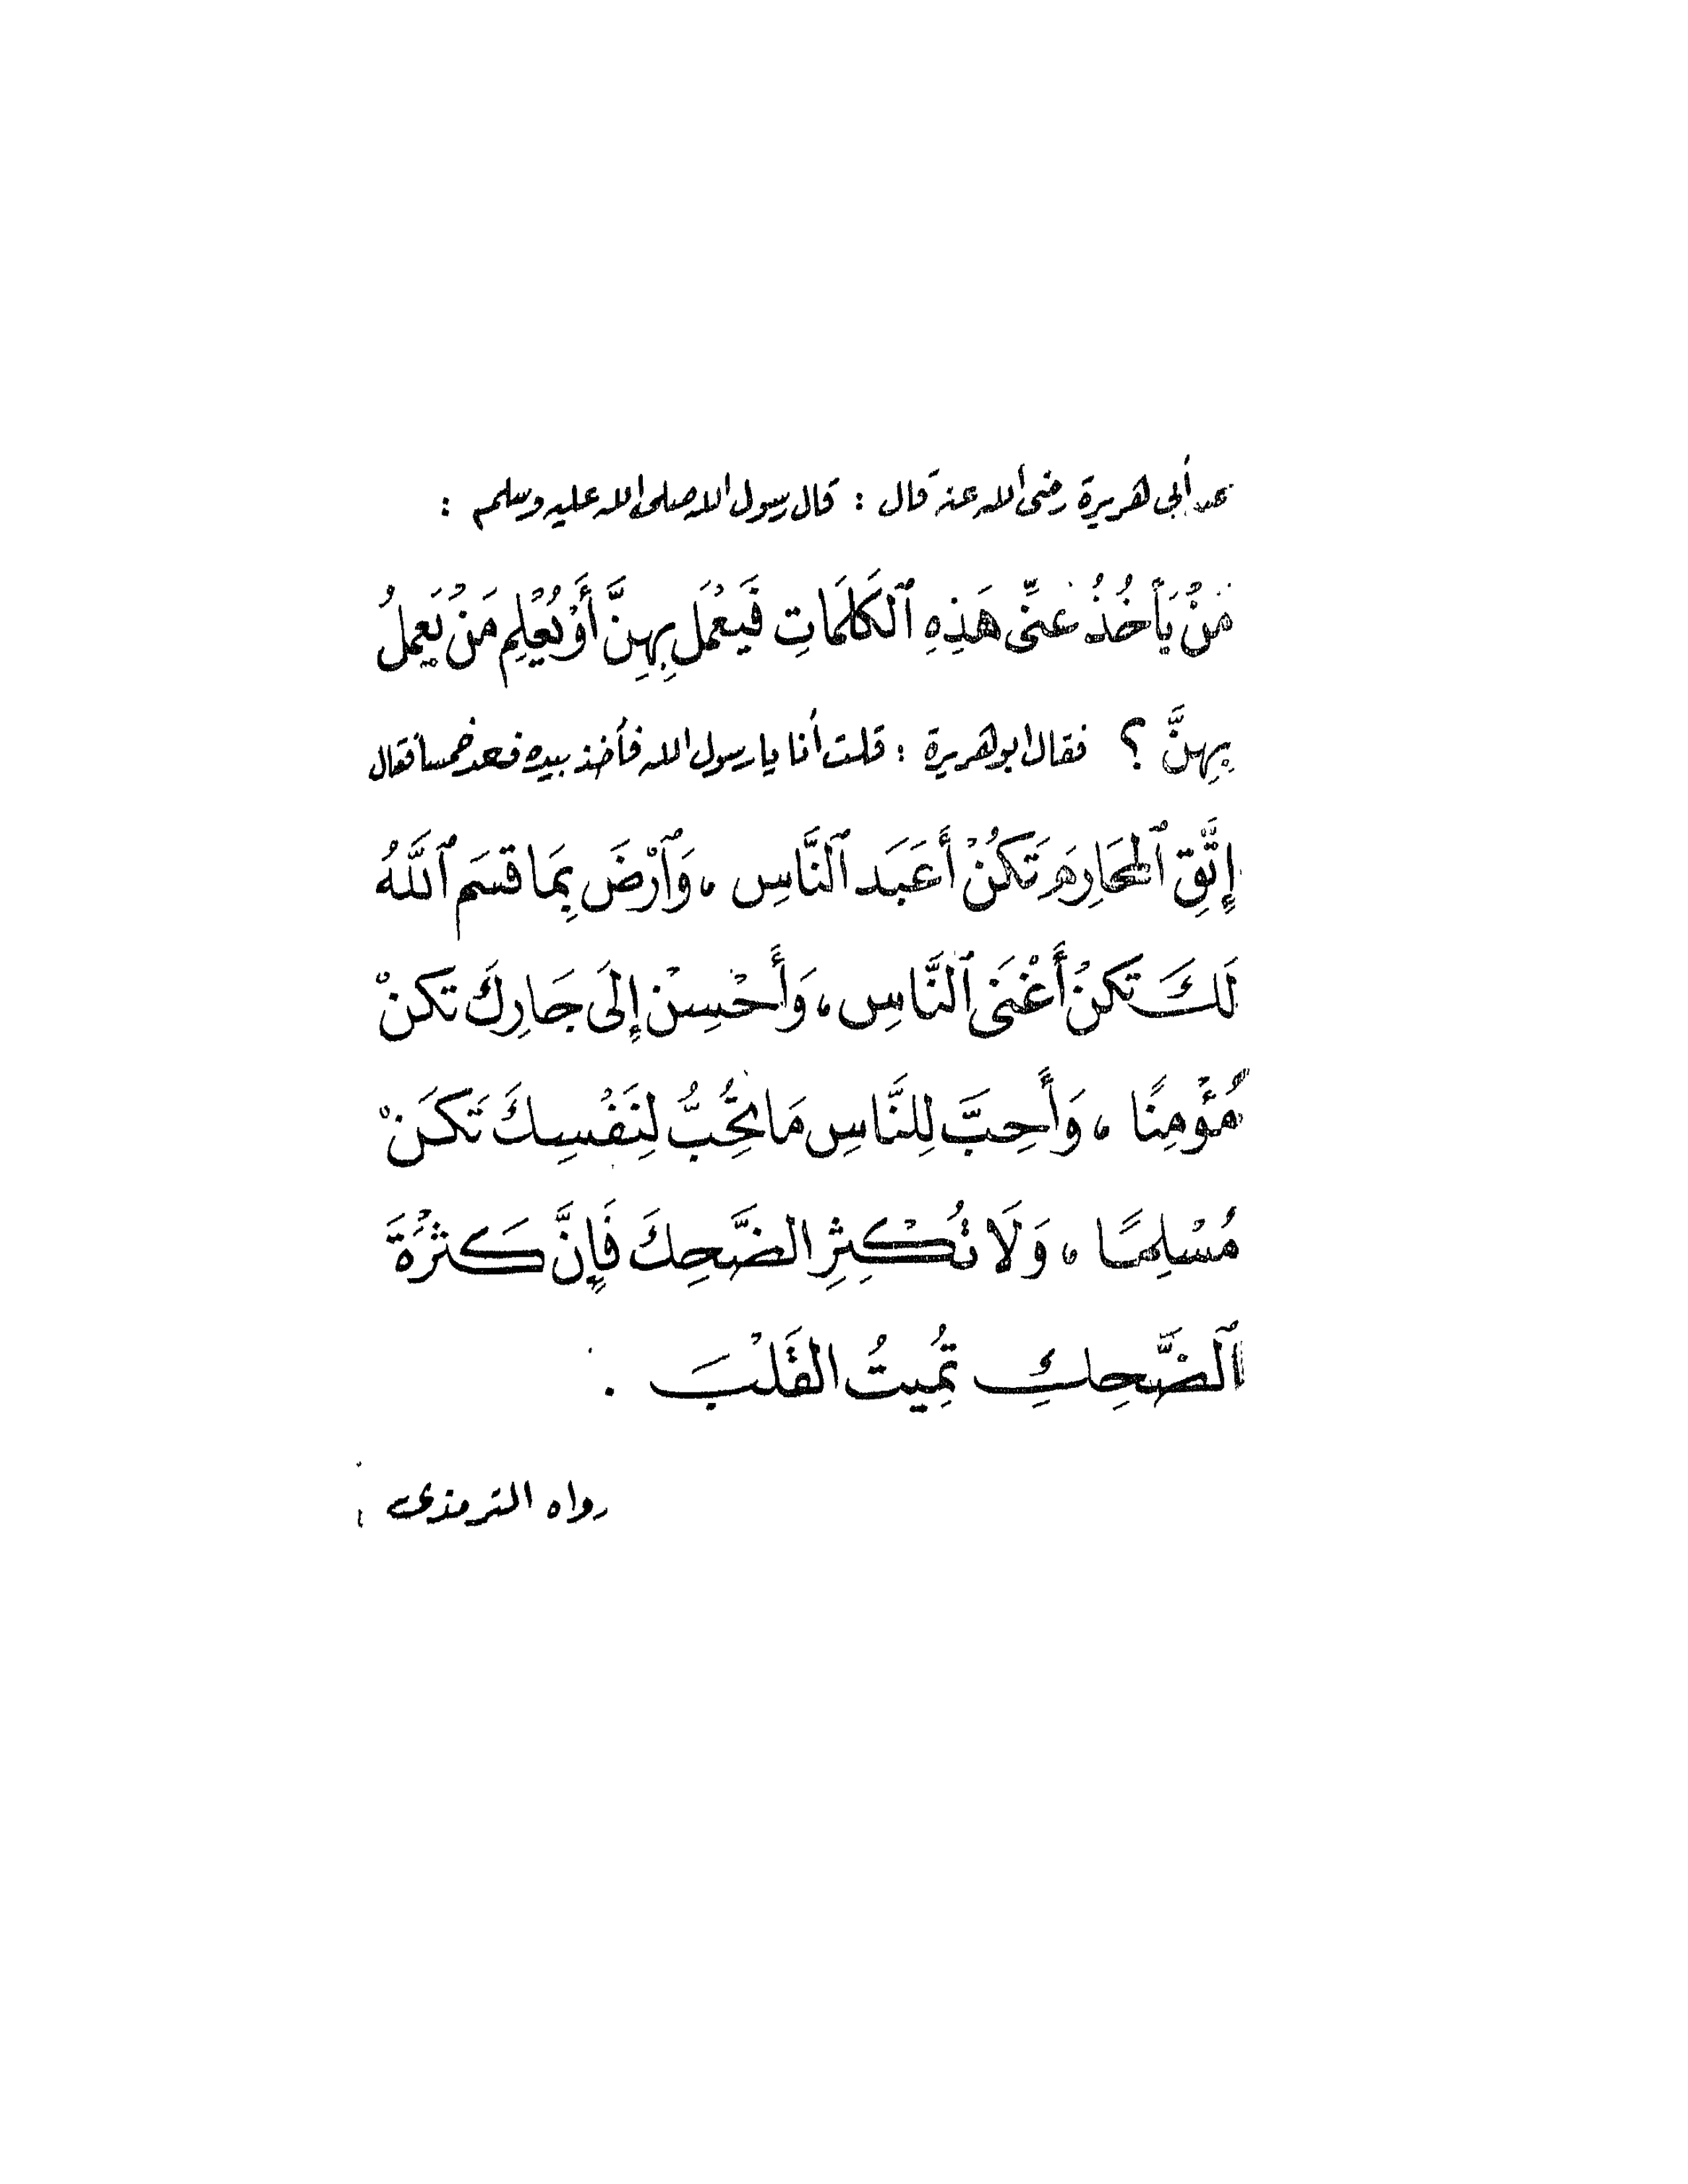 عن أبي هريرة رضى الله عنه قال : قال رسول الله صلى الله عليه وسلم :
مَنْ يَأْخُذُ عَنِّى هَذِهِ ٱلْكَلِمَاتِ فَيَعْمَل بِهِنَّ أَوْ يُعْلِم مَنْ يَعمِلُ
بِهِنَّ ؟ فقال ابو هريرة : قلت أنا يا رسول الله فأخذ بيده فعد خمسا فقال
إِتَّقِ ٱلمَحَارِمَ تَكُنْ أَعَبَد ٱلنَّاسِ ، وَٱرْضَ بِمَا قسَم ٱللَّهُ
لَكَ تَكنْ أَغْنَى ٱلنَّاسِ ، وَأَحْسِنْ إِلَى جَارِكَ تَكنْ
مُؤْمِنًا ، وَأَحِبَّ لِلنَّاسِ مَا تُحِبُّ لِنَفْسِكَ تَكَنْ
مُسْلِمًا ، وَلَا تُكْثِرِ الضَّحِكَ فَإِنَّ كَثْرَةَ
ٱلضَّحِكِ تُمِيتُ القَلْبَ .
رواه الترمذى